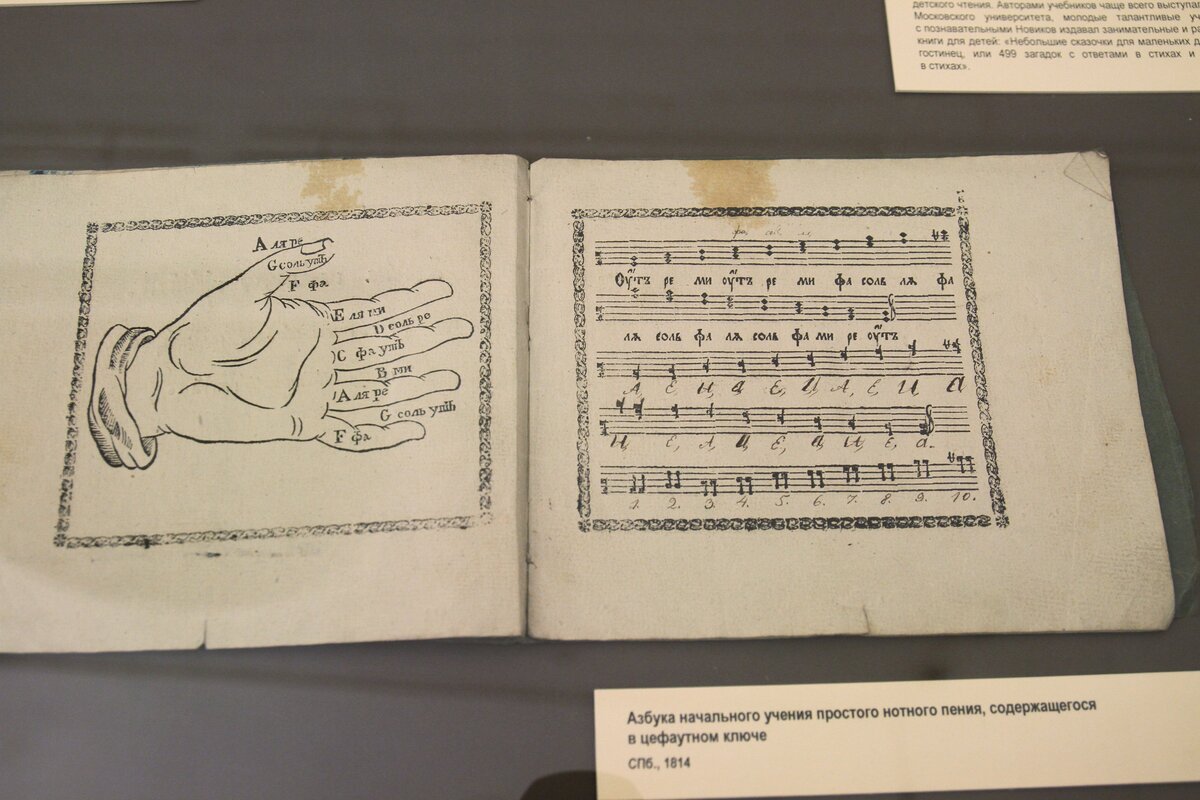 детского чтения. Авторами учебников чаще всего
Московского университета, молодые талантливые
с познавательными Новиков издавал занимательные и
книги для детей: «Небольшие сказочки для маленьких
гостинец, или 499 загадок с ответами в стихах и
в стихах».
А ля ре
G соль утъ
F фа
Е ля ми
D соль ре
С фа утъ
В ми
А ля ре
G соль утъ
F фа
ре ми ре ми фа соль ля фа
ля соль фа ля соль фа ми ре
1. 2. 3. 4. 5. 6. 7. 8. 9. 10.
Азбука начального учения простого нотного пения, содержащегося
в цефаутном ключе
СПб., 1814